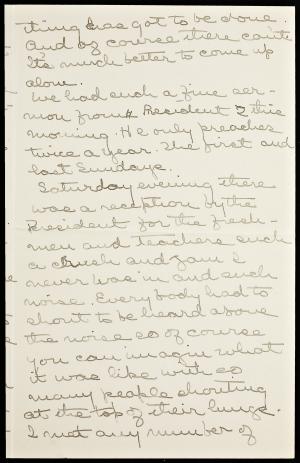 thing has got to be done.
And of course there can't
Its much better to come up
alone.
We had such a fine ser-
mon from President this
morning. He only preaches
twice a year. The first and
last Sundays.
Saturday evening there
was a reception by the
President for the fresh-
men and teachers such
a crush and jam I
never was in and such
noise. Every body had to
shout to be heard above
the noise so of course
you can imagin what
it was like with so
many people shouting
at the top of their lungs.
I met any number of